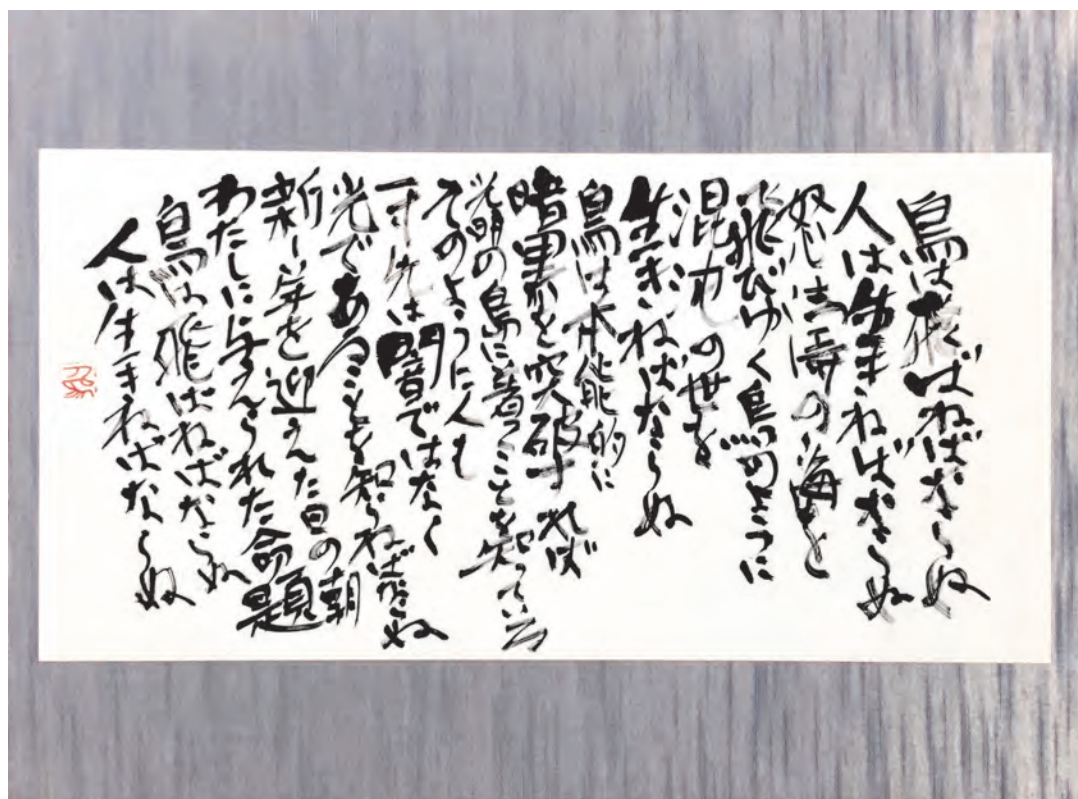 鳥は飛ばねばならぬ
人は生きねばならぬ
怒濤の海を
飛びゆく鳥のように
混沌の世を
生きねばならぬ
鳥は本能的に
暗黒を突破すれば
光明の島に着くことを知っている
そのように人も
一寸先は闇ではなく
光であることを知らねばならぬ
新しい年を迎えた日の朝
わたしに与えられた命題
鳥は飛ばねばならぬ
人は生きねばならぬ